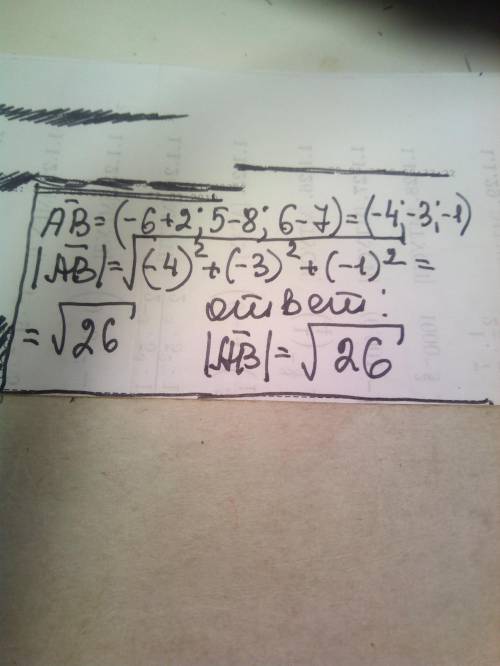 AB̄=(-6+2; 5-8; 6-7)=(-4;-3;-1)
|AB̄|=√(-4)²+(-3)²+(-1)²=
=√26 ответ:
|AB̄|=√26